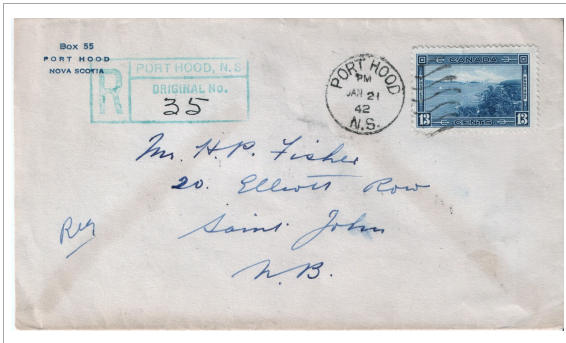 Box 55
PORT HOOD
NOVA SCOTIA
R
PORT HOOD, N.S
ORIGINAL No.
35
PORT HOOD
PM
JAN 21
42
N.S.
CANADA
13 CENTS 13
Mr. H. P. Fisher
20. Elliott Row
Reg
Saint John
N.B.